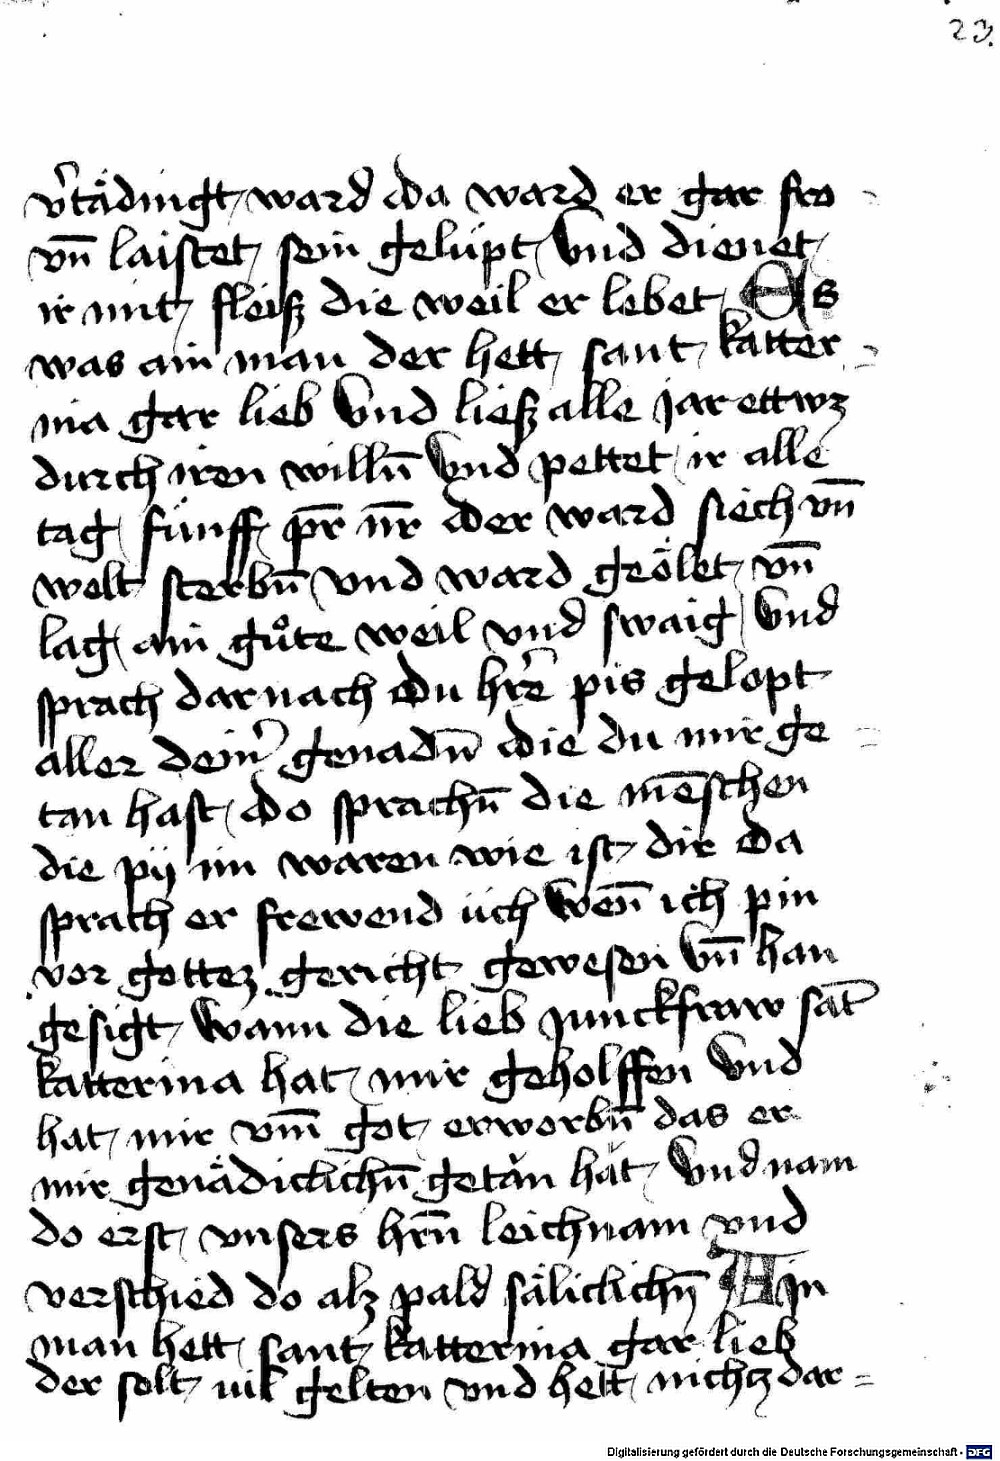 23.
v̾tädingt ward da ward er gar fro
vn̄ laistet sein gelüpt Vnd dienet
ir mit fleiß die weil er lebet Es
was ain man der hett sant katter
ina gar lieb Vnd ließ alle jar ettwz
durch iren willn̄ Vnd pettet ir alle
tag fünff pr̄ nr̄ der ward siech vn̄
wolt sterbn̄ vnd ward geölet vn̄
lag ain gůte weil vnd swaig Vnd
sprach darnach Du hr̄e pis gelopt
aller dein̾ genadn̄ die du mir ge
tan hast do sprachn̄ die mēschen
die pÿ im waren wie ist dir Da
sprach er frewend üch Wen̄ ich pin
vor gottez gericht gewesen Vn̄ han
gesigt Wann die lieb junckfraw sāt
katterina hat mir geholffen Vnd
hat mir vm̄ got erworbn̄ das er
mir genädiclichn̄ getan hät Vnd nam
do erst vnsers hrn̄ leichnam vnd
verschied do alz pald säliclichn̄ Ain
man hett sant katterina gar lieb
der solt uil gelten vnd hett nichcz dar=
Digitalisierung gefördert durch die Deutsche Forschungsgemeinschaft - DFG